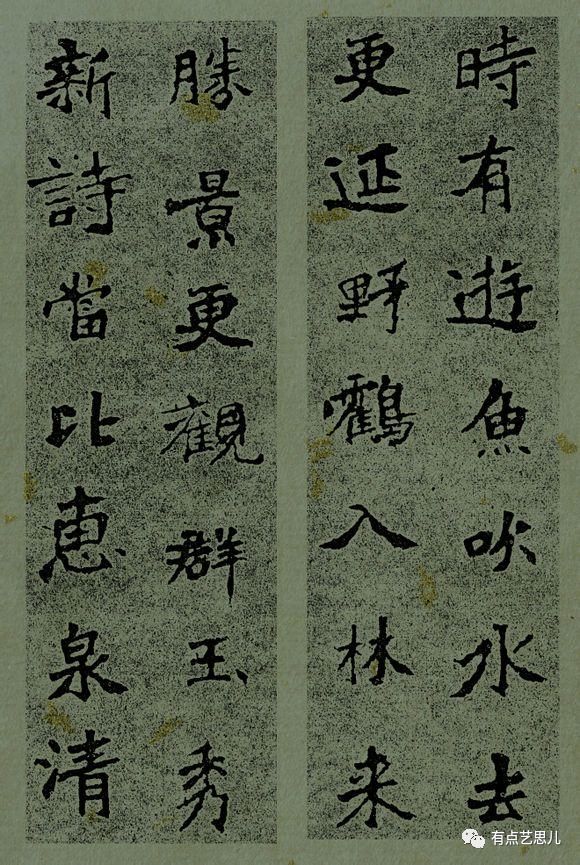 時有遊魚吹水去
更延野鸖入林来
勝景更觀群玉秀
新詩當比惠泉清
有点艺思儿